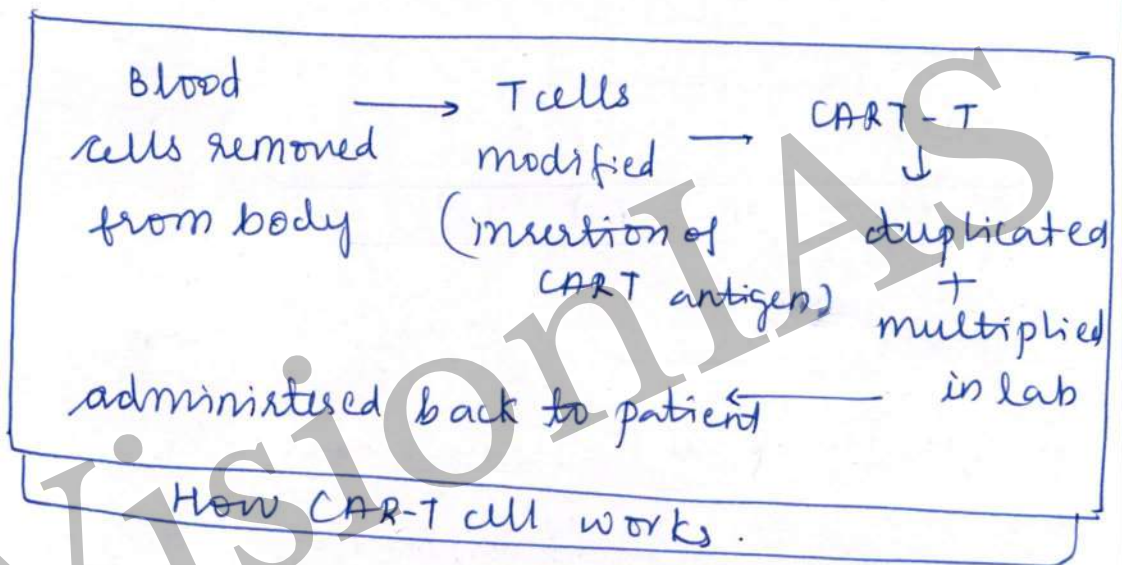 Blood
cells removed
from body
T cells
modified
(insertion of
CART antigen)
CART-T
duplicated
+
multiplied
in lab
administered back to patient
How CAR-T cell works.
VisionIAS